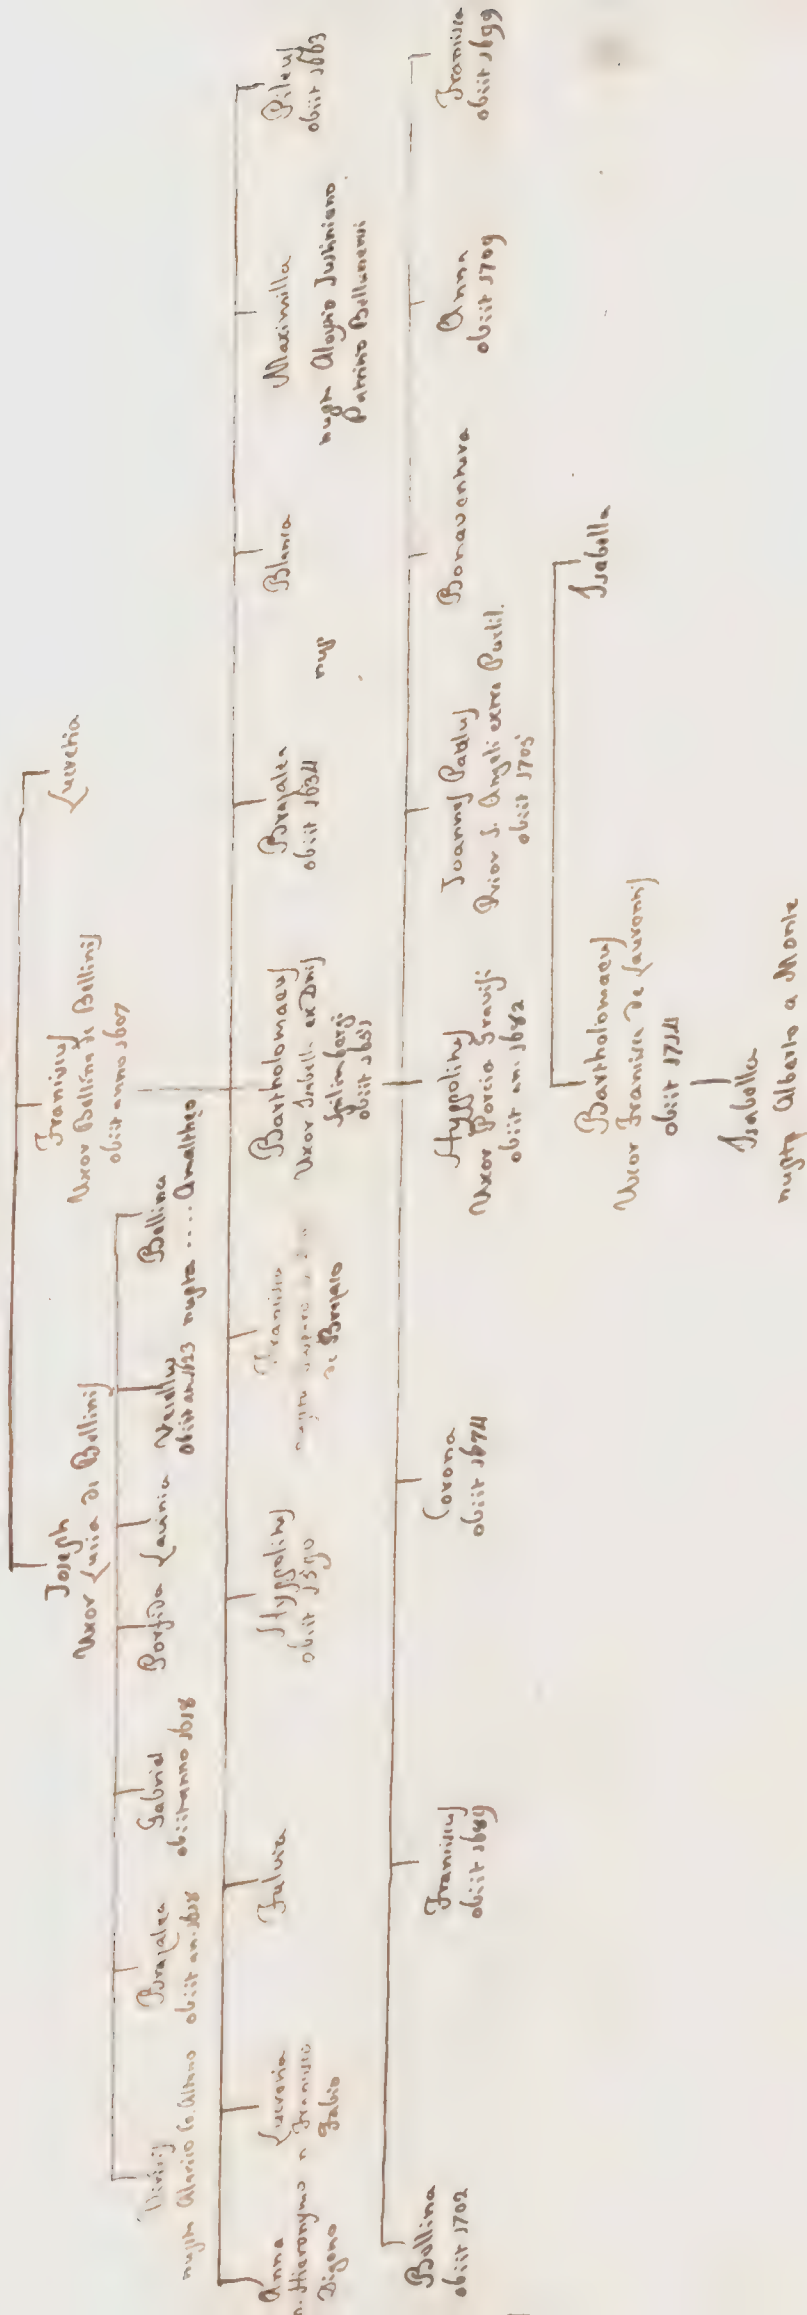 Joseph
Uxor Lucia de Bellinis
Franciscus
Uxor Bellina de Bellinis
obiit anno 1607
Lucretia
nupta Alarico Co. Altano
Brazalea
obiit an. 1628
Gabriel
obiit anno 1618
Porfida
Lavinia
Vecellus
obiit an. 1623
Bellina
nupta .... Amaltheo
Anna
n. Hieronymo
Digono
Lucretia
n Francisco
Fabio
Fulvia
Hyppolitus
obiit 1590
Francisca
nupta
de Brazaco
Bartholomaeus
Uxor Isabella ex Dnis
Spilimbergi
obiit 1651
Brazalea
obiit 1634
nup
Blanca
Maximilla
nupta Aloysio Justiniano
Patritio Bellunensi
Pileus
obiit 1663
Bellina
obiit 1702
Franciscus
obiit 1689
Corona
obiit 1674
Hyppolitus
Uxor Porcia Gravisi
obiit an. 1682
Joannes Paulus
Prior S. Angeli extra Portil.
obiit 1705
Bonaventura
Anna
obiit 1709
Francisca
obiit 1699
Bartholomaeus
Uxor Francisca de Lavrentis
obiit 1734
Isabella
Isabella
nupta Alberto a Monte